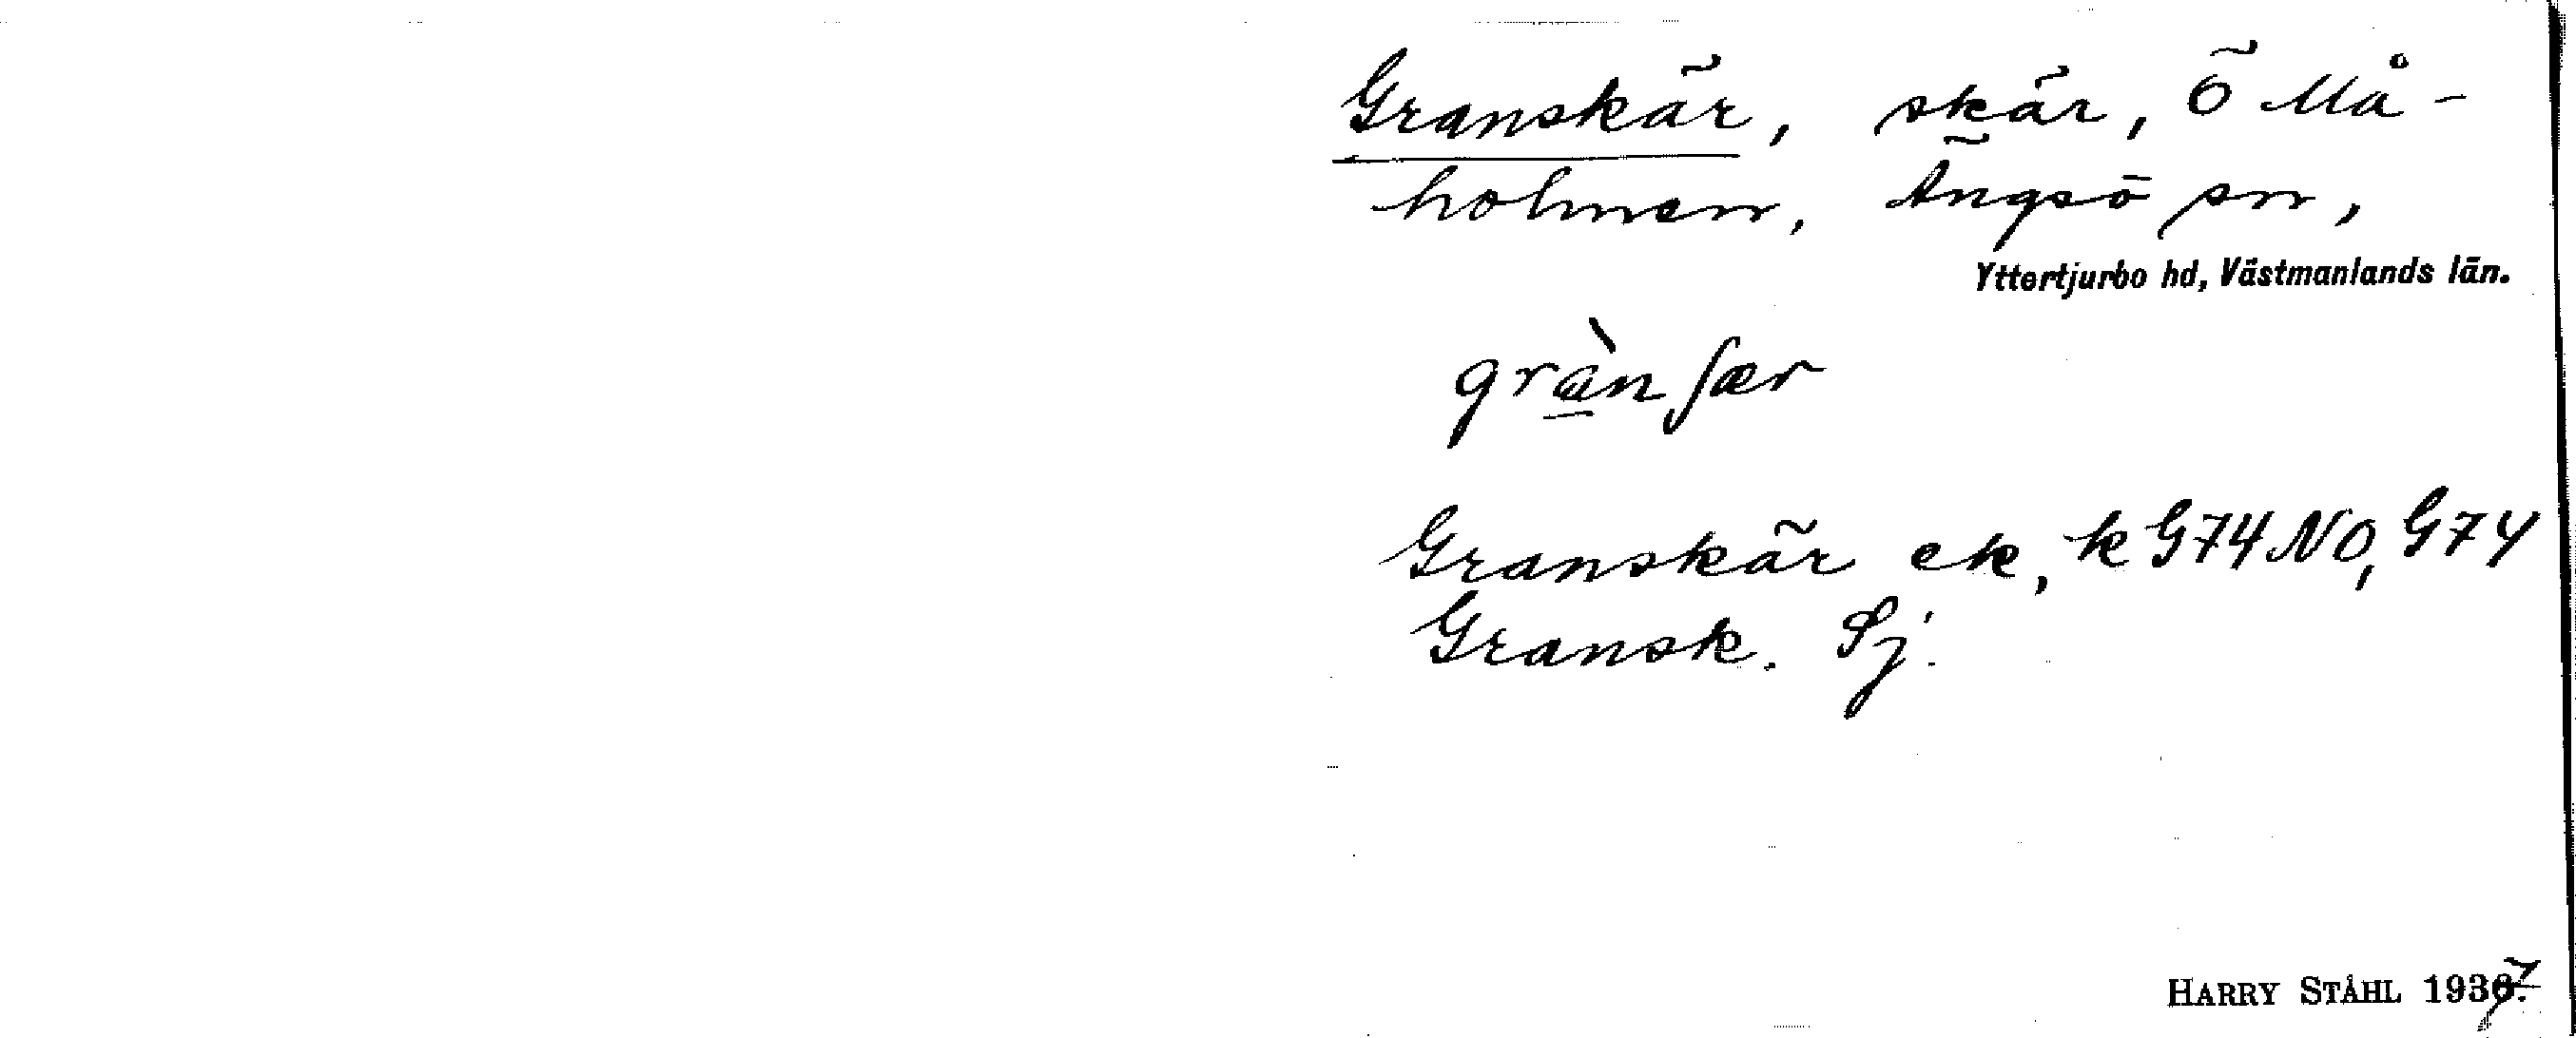 Granskär, skär, Ö Må-
holmen, Ängsö sn,
Yttertjurbo hd, Västmanlands län.
gràn ʃær
Granskär ek, k G74NO, G74
Gransk. Sj.
HARRY STÅHL 1937.